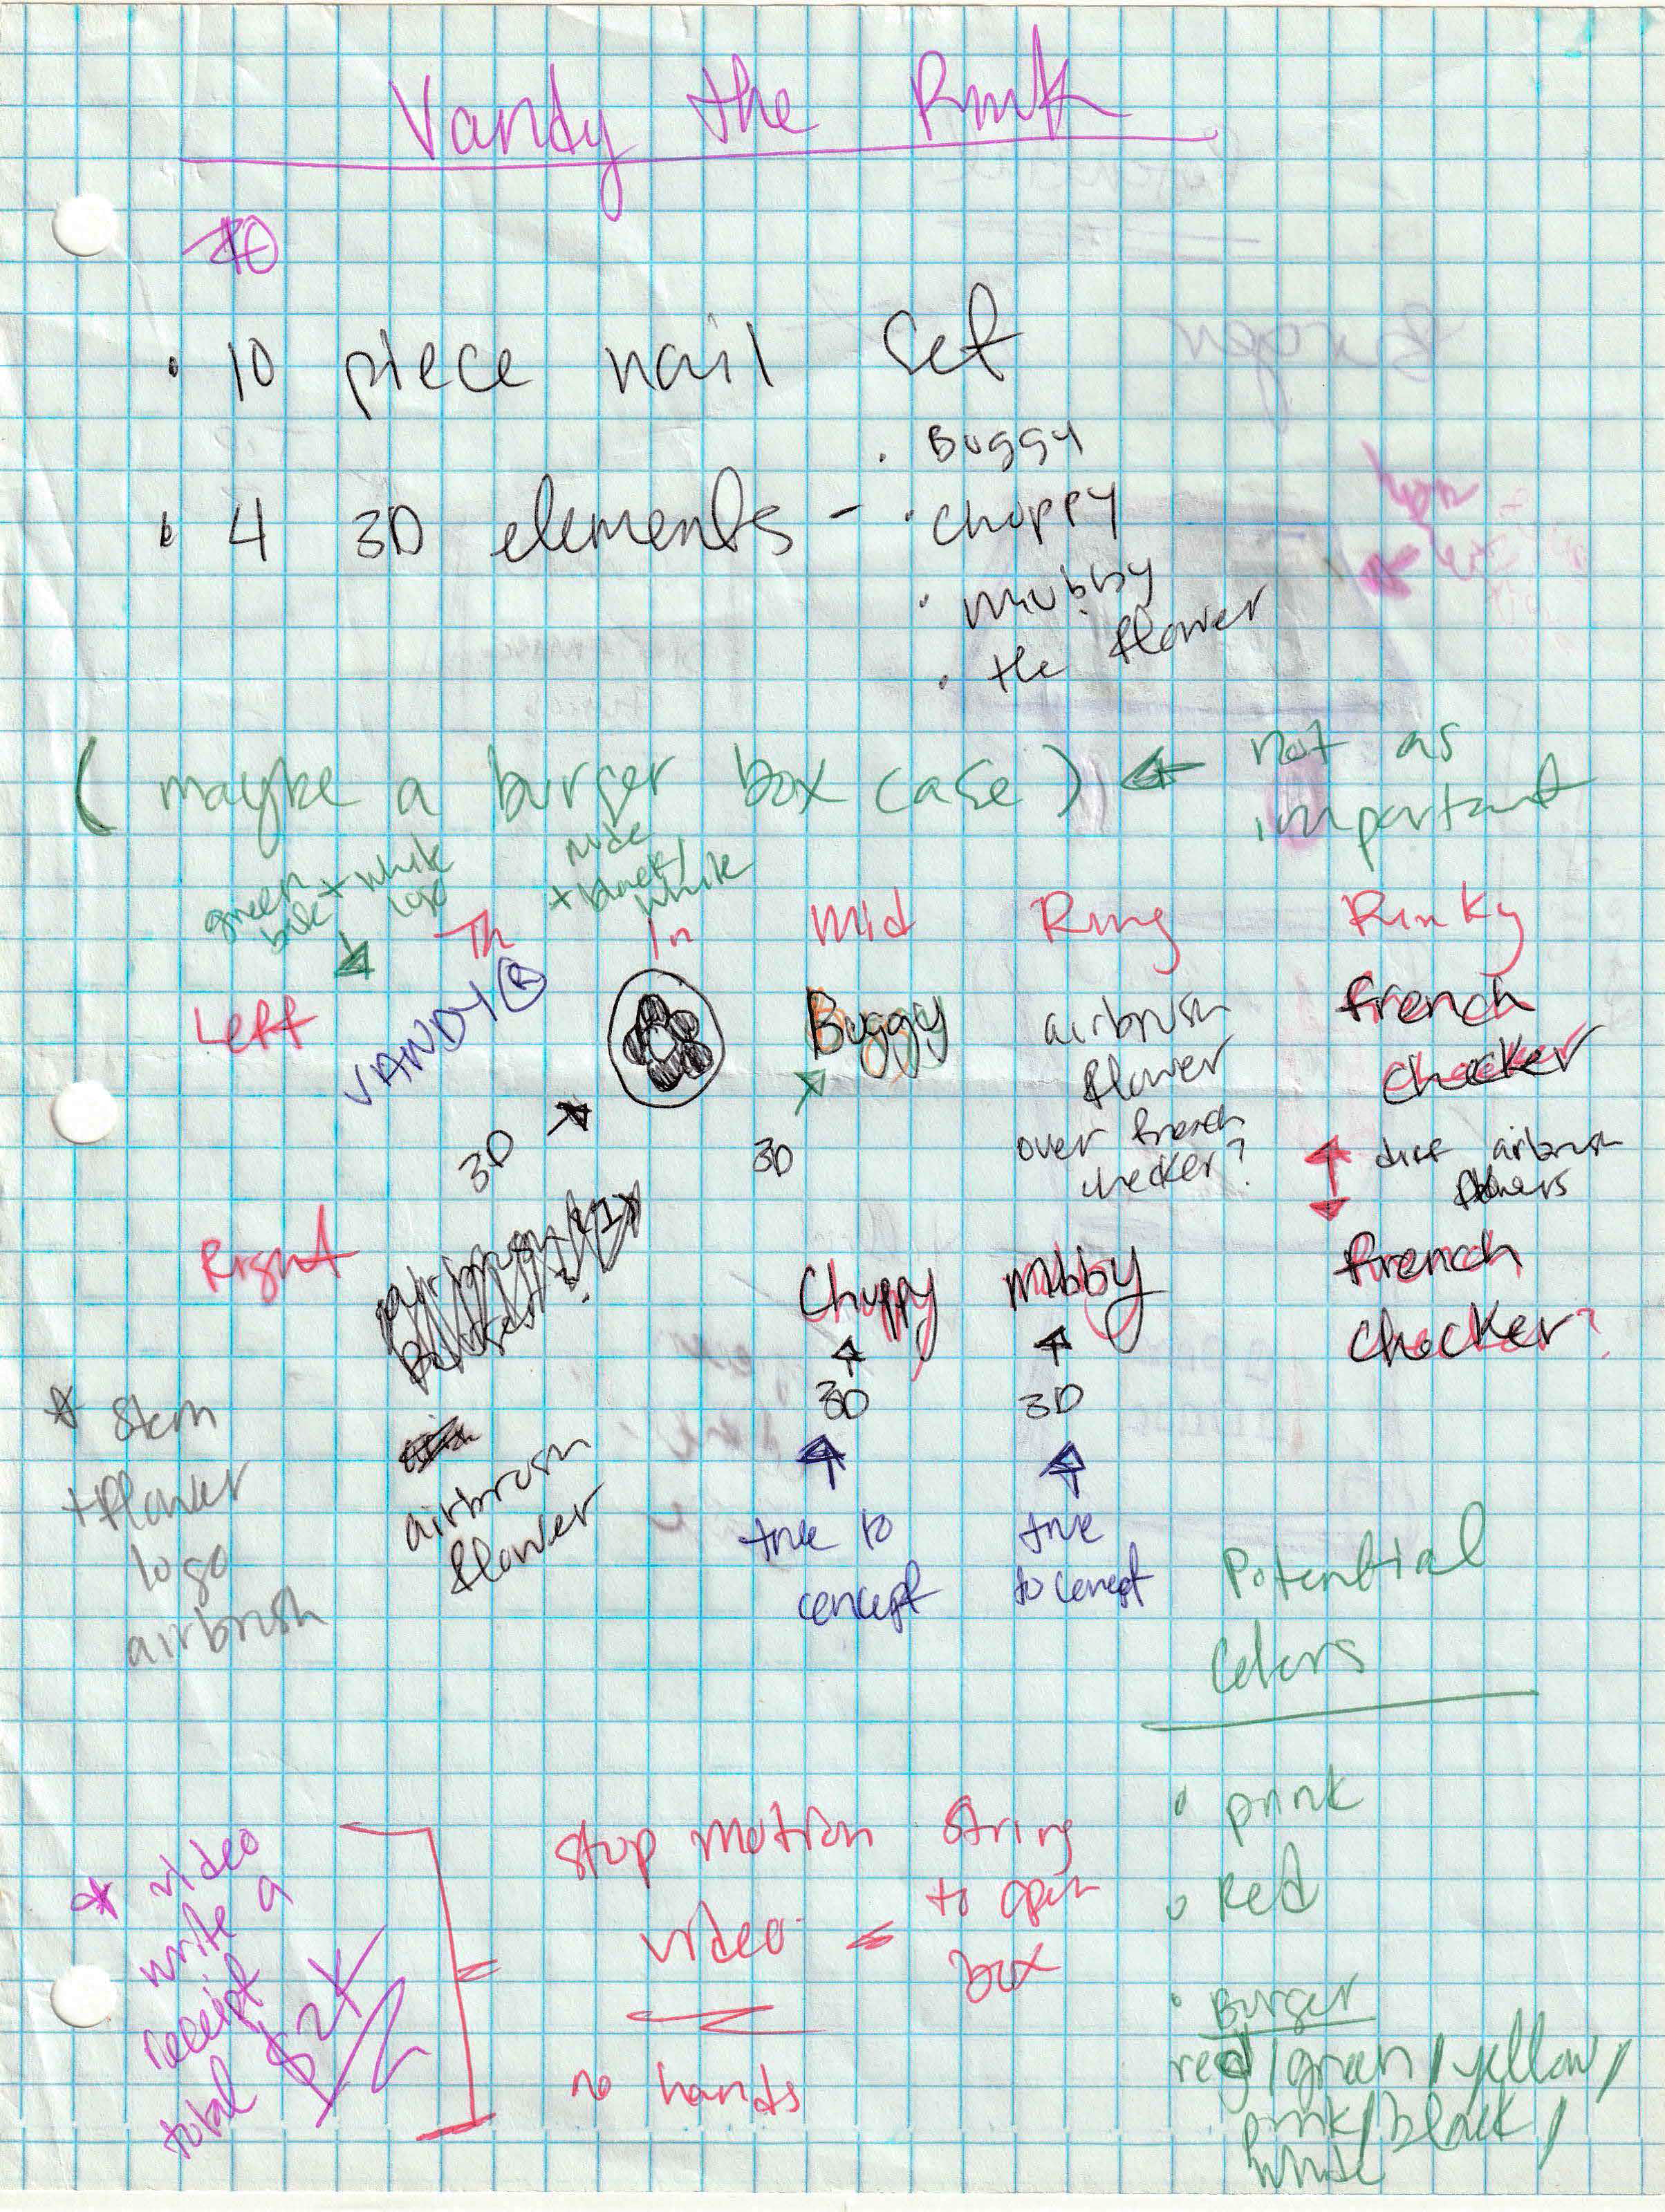 Vandy the Pink
10
• 10 piece nail set
• 4 3D elements -
• Buggy
• Chuppy
• Mubby
• the flower
(maybe a burger box case) ← not as
important
green
base + white
logo
nude
+ black/
white
Th In Mid Ring Pinky
Left VANDY® Buggy airbrush
flower
over french
checker?
french
checker
3D → 3D
diff airbrush
flowers
Right
Chuppy Mubby french
checker?
3D 3D
airbrush
flower
true to
concept
true
to concept
* Stem
+ flower
logo
airbrush
Potential
Colors
• pink
• Red
• Burger
red/green/yellow/
pink/black/
white
* video
write a
receipt
total $2K
stop motion
video
string
to open
box
no hands